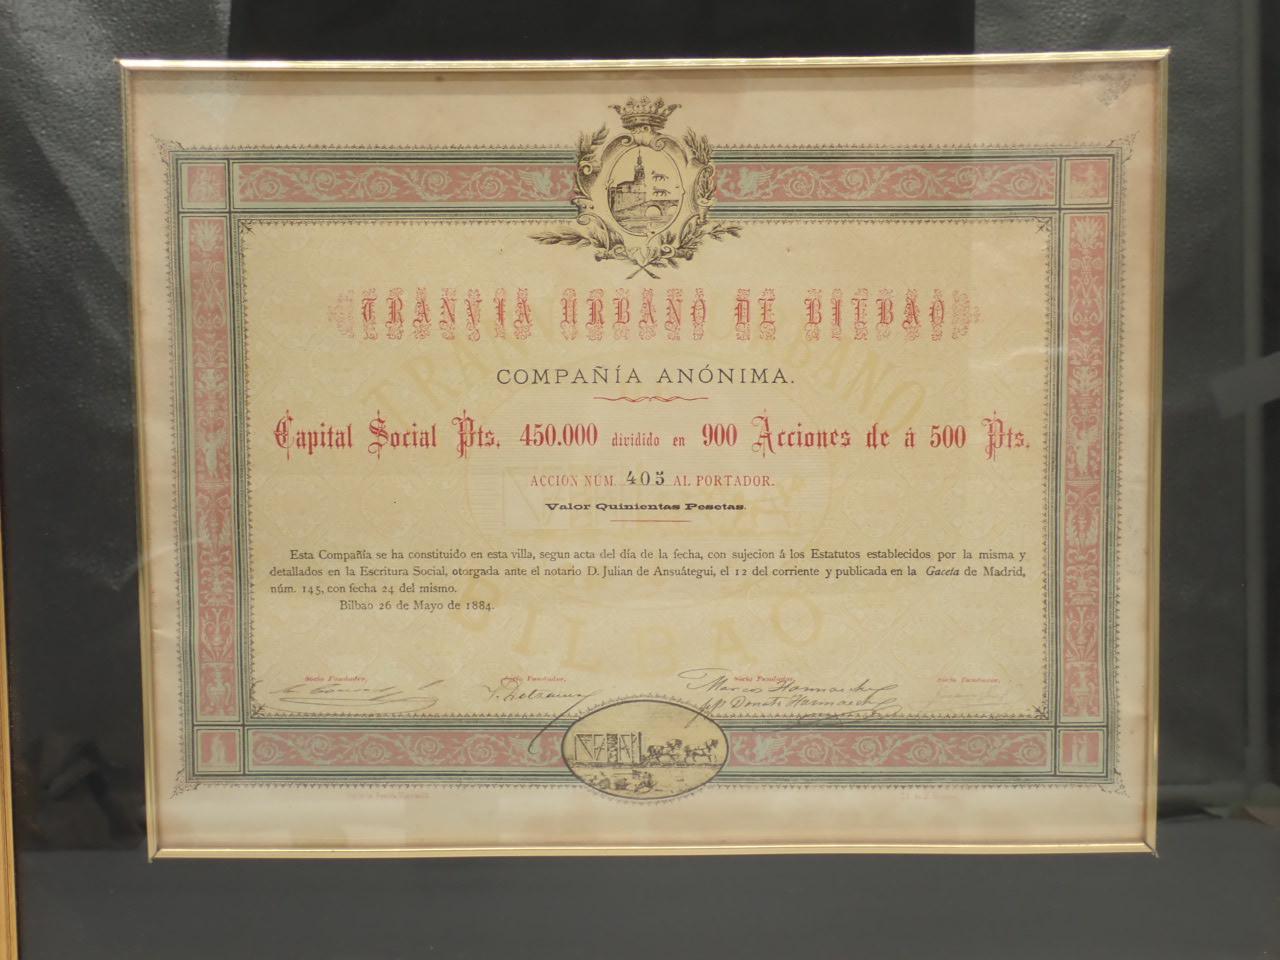 TRANVIA URBANO DE BILBAO
COMPAÑÍA ANÓNIMA.
Capital Social Pts. 450.000 dividido en 900 Acciones de á 500 Pts.
ACCION NÚM. 405 AL PORTADOR.
Valor Quinientas Pesetas.
TRANVIA URBANO
BILBAO
Esta Compañía se ha constituido en esta villa, segun acta del día de la fecha, con sujecion á los Estatutos establecidos por la misma y
detallados en la Escritura Social, otorgada ante el notario D. Julian de Ansuátegui, el 12 del corriente y publicada en la Gaceta de Madrid,
núm. 145, con fecha 24 del mismo.
Bilbao 26 de Mayo de 1884.
Socio Fundador, Socio Fundador, Socio Fundador, Socio Fundador,
Marcos
pp Donato